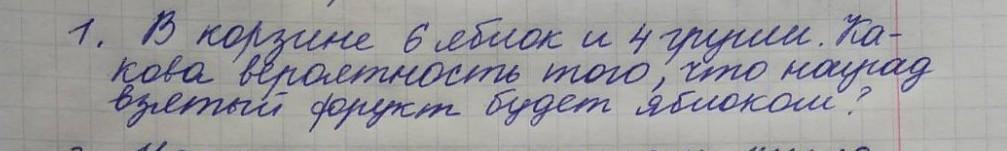 1. В корзине 6 яблок и 4 груши. Ка-
кова вероятность того, что наугад
взятый фрукт будет яблоком?